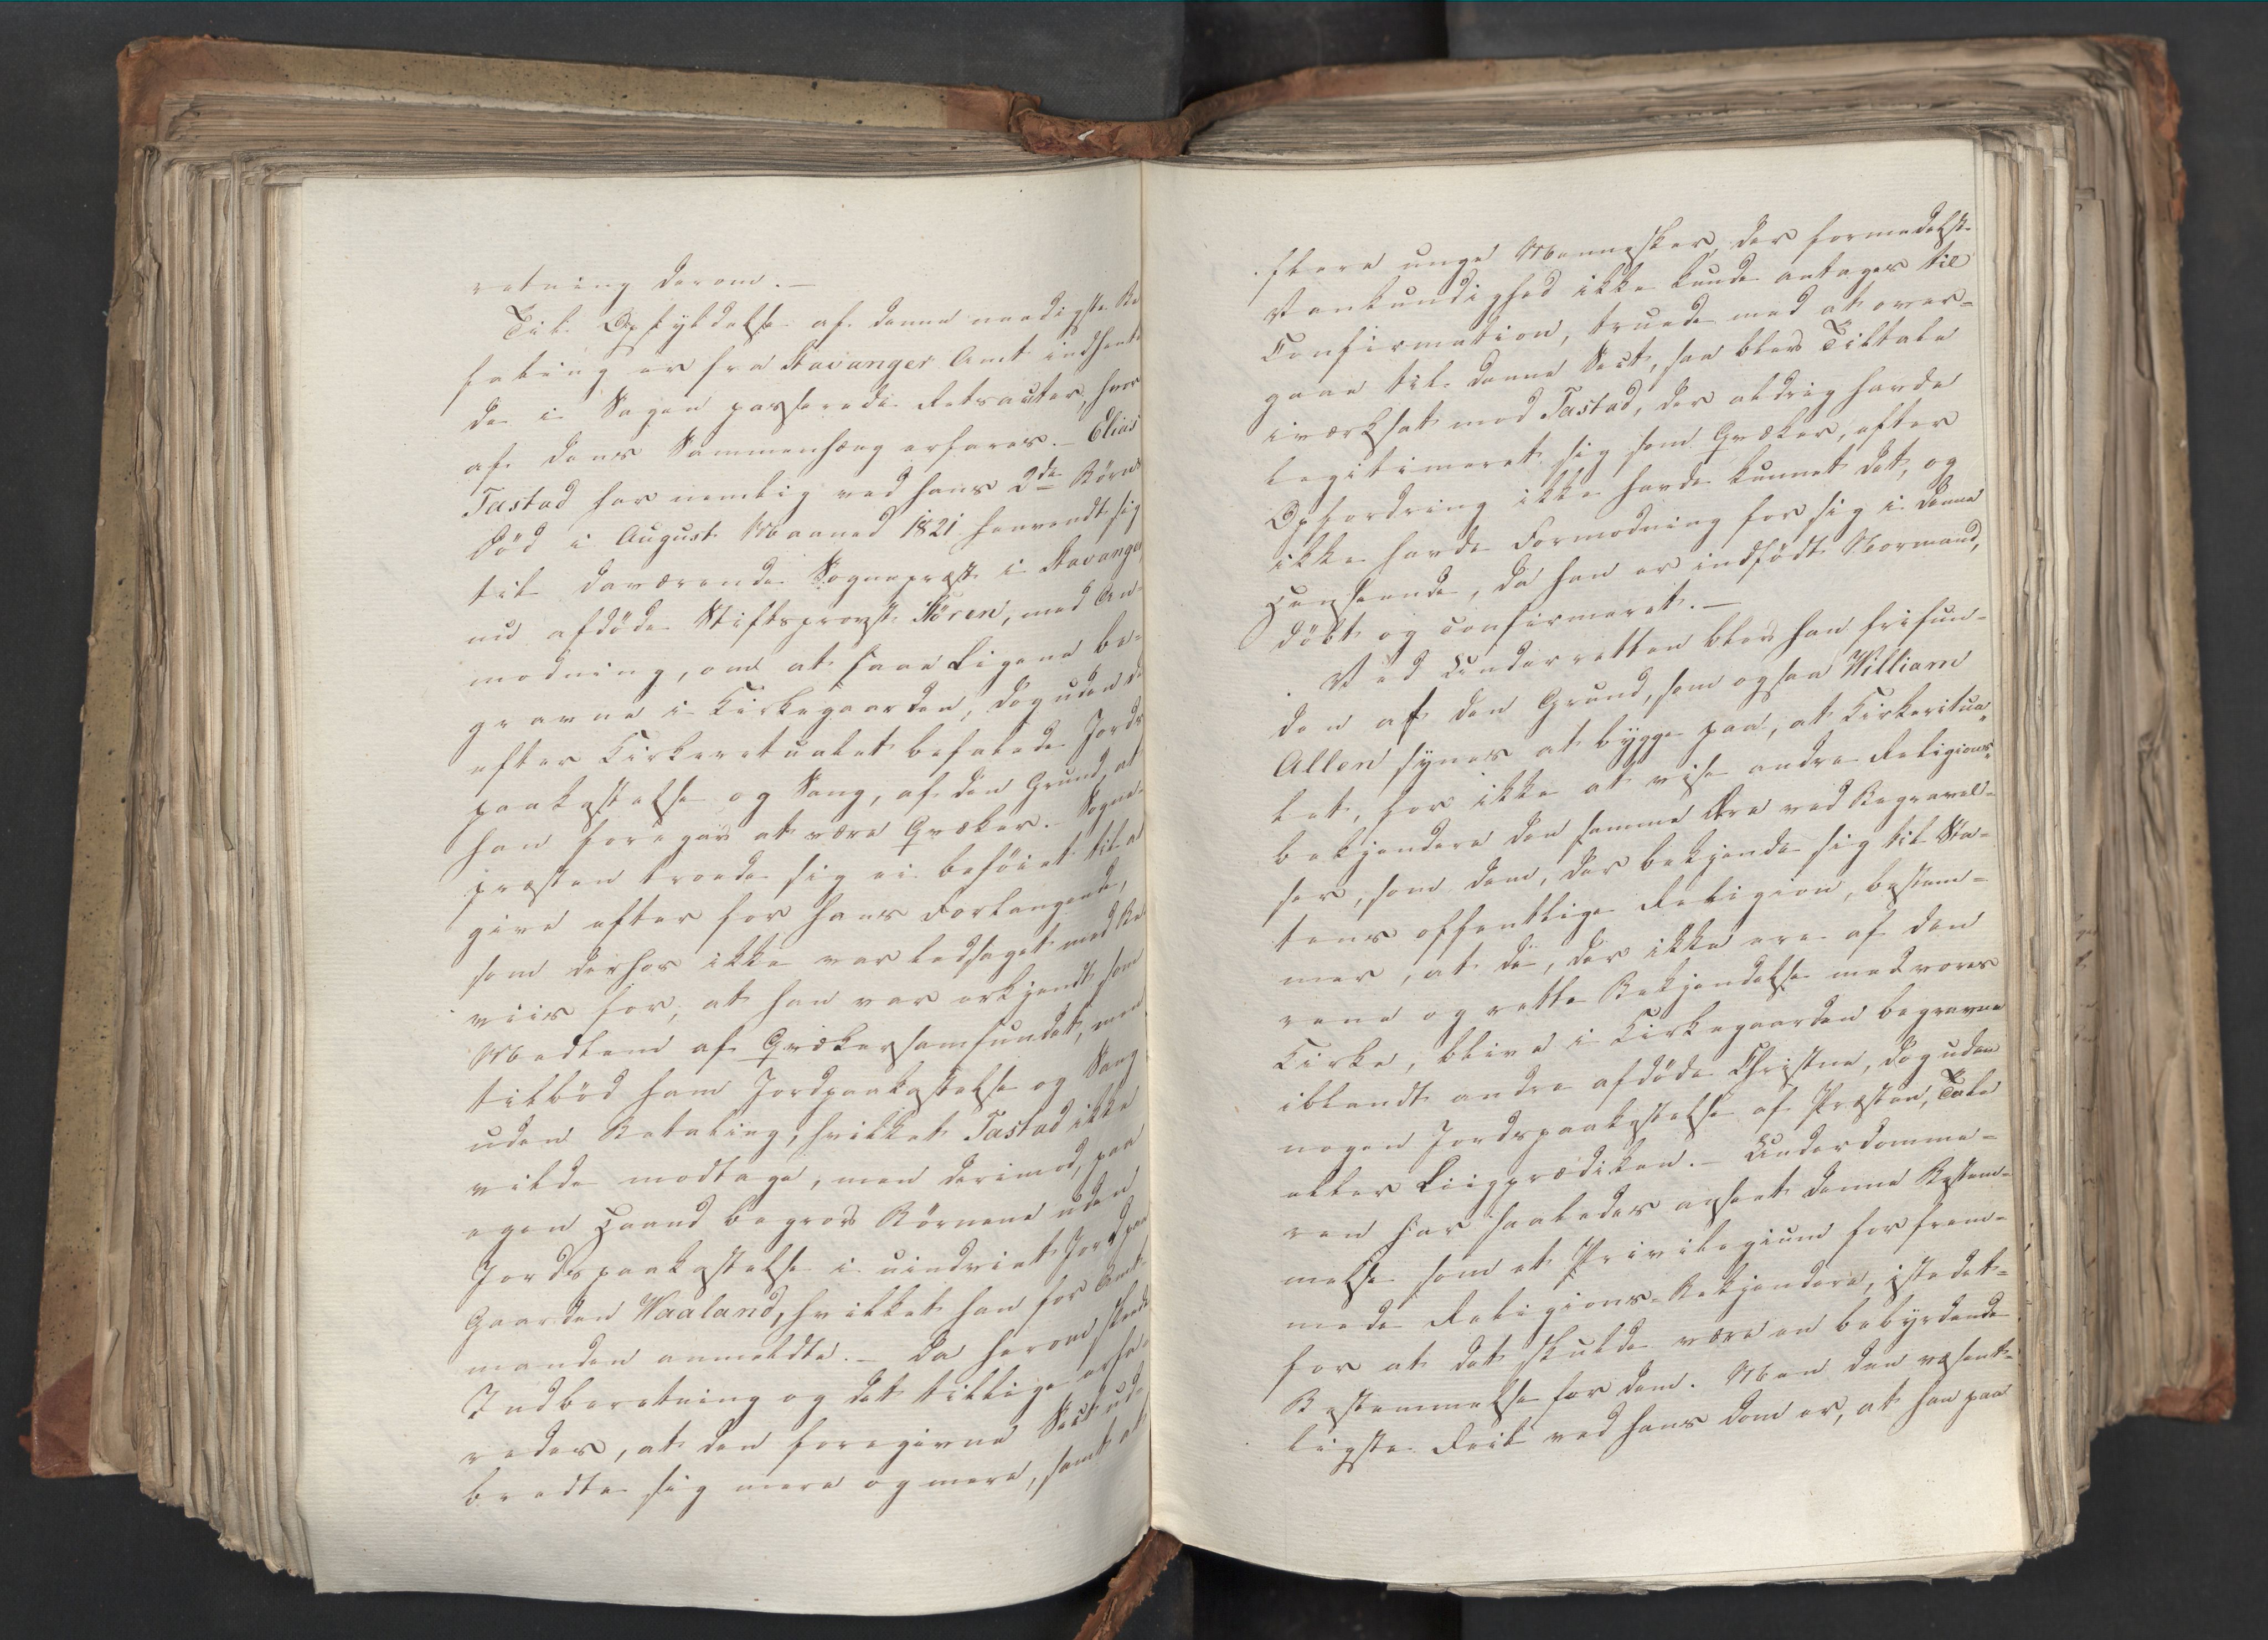 retning derom. —
Til Opfyldelse af denne naadigste Be
faling er fra Stavanger Amt indhent
de i Sagen passerede Retsacter, hvor
af dens Sammenhæng erfares. — Elias
Tastad har nemlig ved hans 2de Börns
Död i August Maaned 1821 henvendt sig
til daværende Sognepræst i Stavanger,
nu afdöde Stiftsprovst Sören, med An-
modning, om at faae Ligene be-
gravne i Kirkegaarden, dog uden de
efter Kirkeretualet befalede Jords
paakastelse og Sang, af den Grund, at
han foregav at være Qvæker. — Sogne-
præsten troede sig ei beföiet til at
give efter for hans Forlangende,
som derhos ikke var ledsaget med Be-
viis for, at han var erkjendt som
Medlem af Qvækersamfundet, men
tilböd ham Jordpaakastelse og Sang
uden Betaling, hvilket Tastad ikke
vilde modtage, men derimod, paa
egen Haand begrov Börnene uden
Jordspaakastelse i uindviet Jord paa
Gaarden Waaland, hvilket han for Amt
manden anmeldte. — Da herom skeede
Indberetning og det tillige erfa-
redes, at den foregivne Sect ud-
bredte sig mere og mere, samt at
flere unge Mennesker, der formedelst
Vankundighed ikke kunde antages til
Confirmation, truede med at over-
gaae til denne Sect, saa blev Tiltale
iværksat mod Tastad, der aldrig havde
legitimeret sig som Qvæker, efter
Opfordring ikke havde kunnet det, og
ikke havde Formodning for sig i denne
Henseende, da han er indfödt Normand,
döbt og confirmeret. —
Ved Underretten blev han frifun-
den af den Grund, som ogsaa William
Allen synes at bygge paa, at Kirkeritua-
let, for ikke at vise andre Religions-
bekjendere den samme Ære ved Begravel-
ser, som dem, der bekjende sig til Sta-
tens offentlige Religion, bestem-
mer, at de, der ikke ere af den
rene og rette Bekjendelse med vores
Kirke, blive i Kirkegaarden begravne
iblandt andre afdöde Christne, dog uden
nogen Jordspaakastelse af Præsten, Tale
eller Liigprædiken. — Underdomme-
ren har saaledes anseet denne Bestem-
melse som et Privilegium for frem-
mede Religions-Bekjendere, istedet-
for at det skulde være en bebyrdende
Bestemmelse for dem. Men den væsent-
ligste Feil ved hans Dom er, at han paa